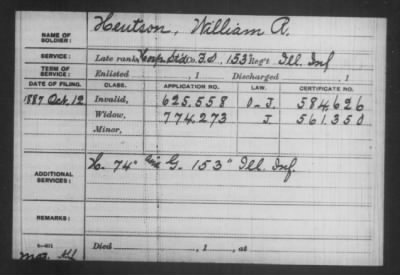 NAME OF SOLDIER: Heutson, William R.
SERVICE: Late rank, Co. F.D., 153 Reg't Ill. Inf
TERM OF SERVICE: Enlisted , 1 Discharged , 1
DATE OF FILING. CLASS. APPLICATION NO. LAW. CERTIFICATE NO.
1887 Oct. 12 Invalid, 625.558 584626
Widow, 774.273 J. 561.350
Minor,
ADDITIONAL SERVICES: K. 74" G. 153" Ill. Inf.
REMARKS:
Died , 1 , at